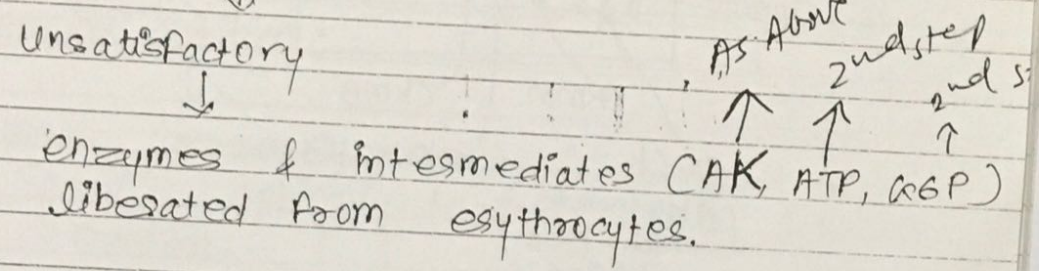 Unsatisfactory
As Above
2nd step
2nd s
↓
↑ ↑ ↑
enzymes & intermediates (AK, ATP, G6P)
liberated from erythrocytes.